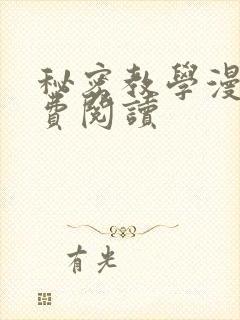 秘密教學漫
費閱讀
有光